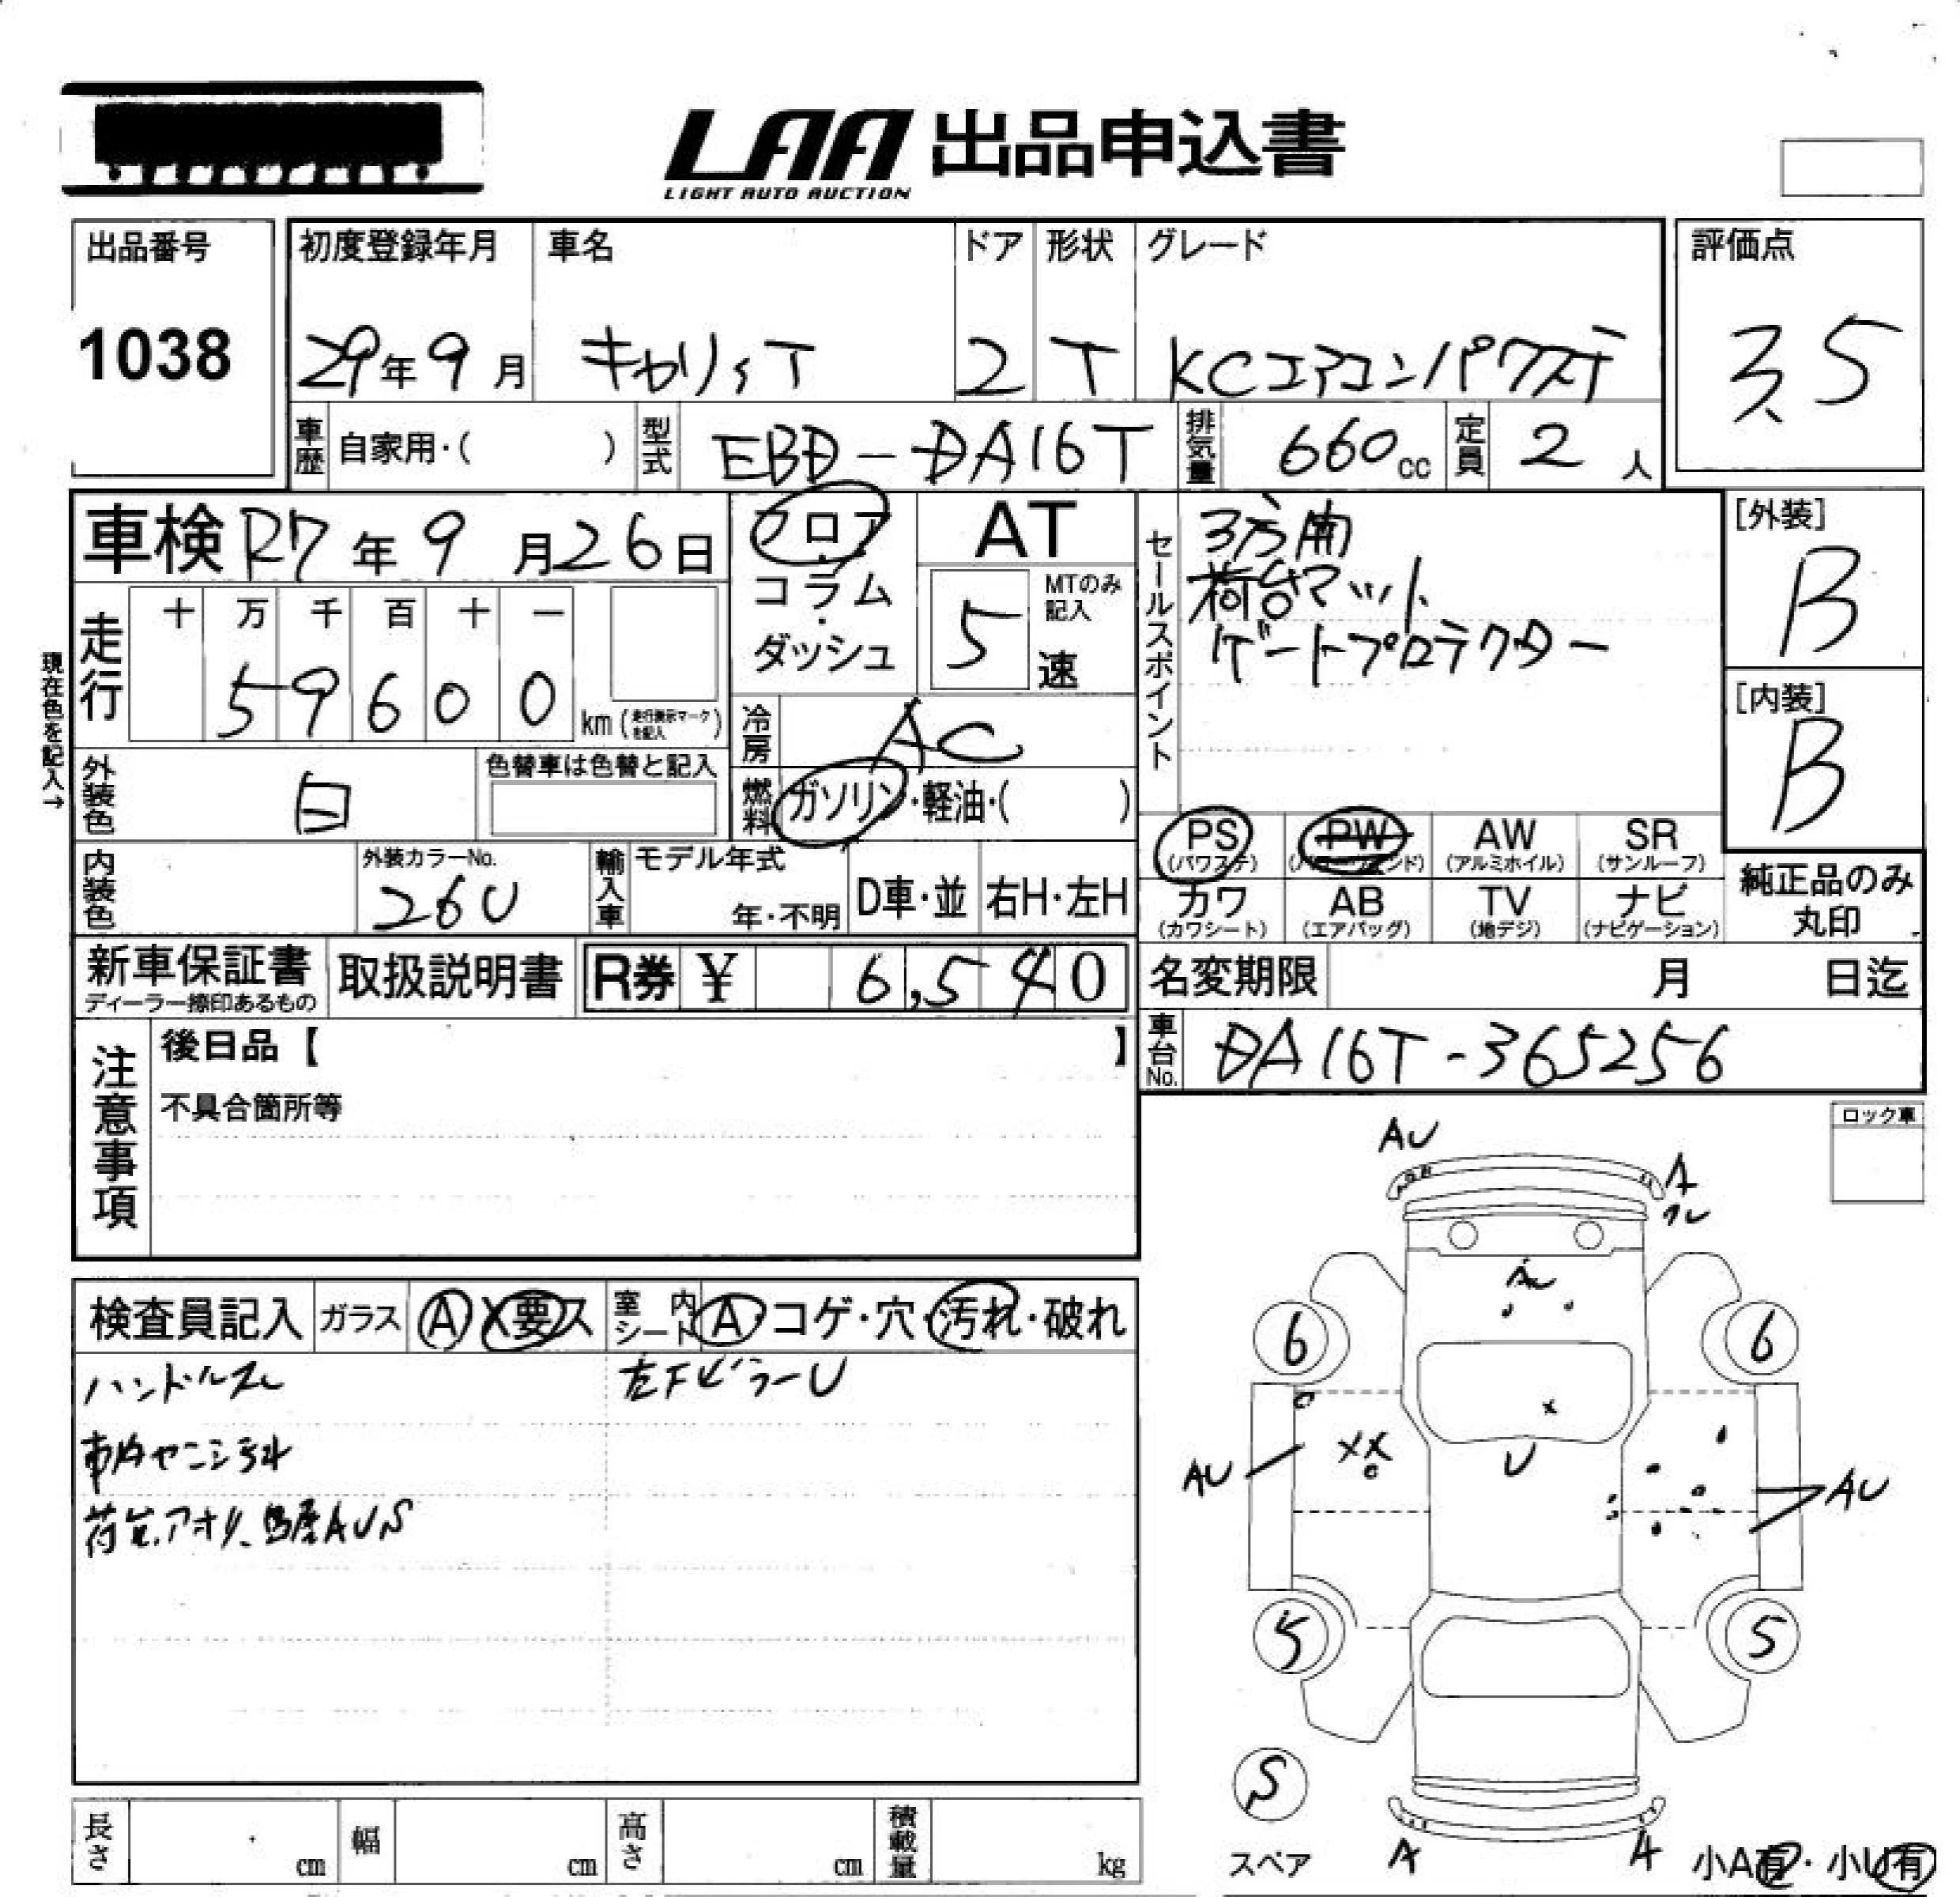 LAA 出品申込書
LIGHT AUTO AUCTION
出品番号
1038
初度登録年月
29年9月
車名
キャリィT
ドア
2
形状
T
グレード
KCエアコンパワステ
評価点
3.5
車歴 自家用・( )
型式 EBD-DA16T
排気量 660cc
定員 2人
車検 R7年9月26日
フロア・コラム・ダッシュ
AT
5速
MTのみ記入
セールスポイント
3方開
荷台マット
ゲートプロテクター
[外装]
B
[内装]
B
現在色を記入→
走行
十 万 千 百 十 一
5 9 6 0 0 km (走行表示マークを記入)
冷房 AC
燃料 ガソリン・軽油・( )
外装色 白
色替車は色替と記入
内装色
外装カラーNo.
26U
輸入車 モデル年式
年・不明
D車・並
右H・左H
PS (パワステ)
PW
AW (アルミホイル)
SR (サンルーフ)
カワ (カワシート)
AB (エアバッグ)
TV (地デジ)
ナビ (ナビゲーション)
純正品のみ丸印
新車保証書
ディーラー捺印あるもの
取扱説明書
R券 ¥ 6,540
名変期限 月 日迄
車台No. DA16T-365256
注意事項
後日品【 】
不具合箇所等
ロック車
検査員記入
ガラス A X要ス
室内シート A・コゲ・穴・汚れ・破れ
ハンドルスレ
左FピラーU
荷台、アオリ、鳥居AUS
AU
A
スレ
AU
6
6
X
XX
U
AU
AU
5
5
S
スペア
A
A
小A有・小U有
長さ cm
幅 cm
高さ cm
積載量 kg